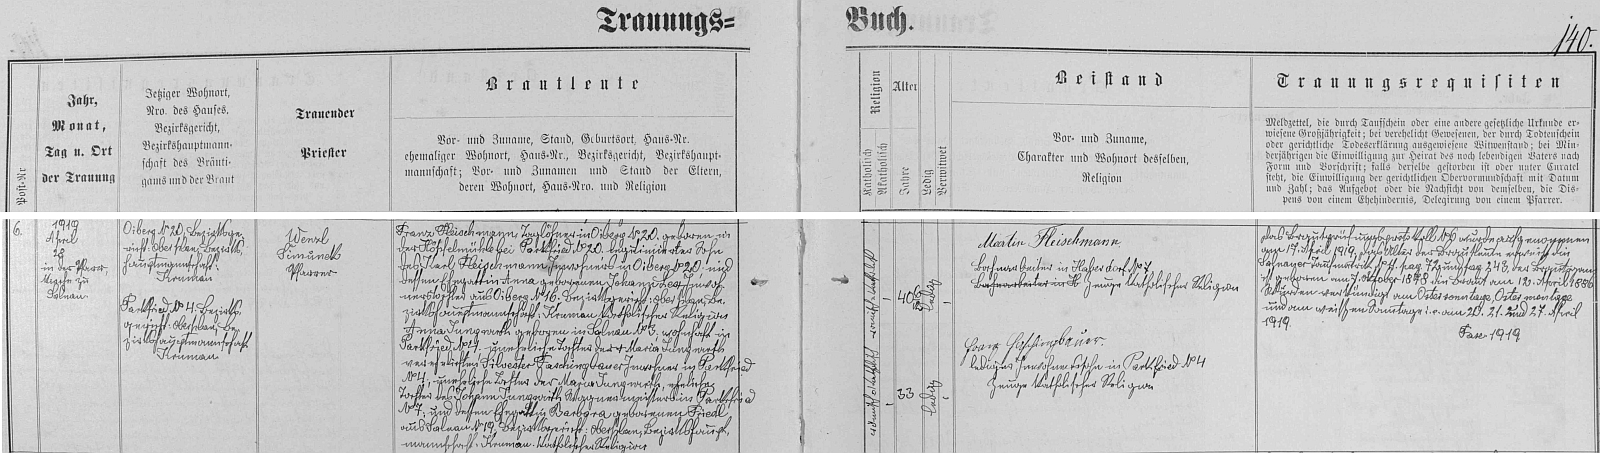 Trauungs=
Buch.
140.
Post-Nr
Jahr,
Monat,
Tag u. Ort
der Trauung
Jetziger Wohnort,
Nro. des Hauses,
Bezirksgericht,
Bezirkshauptmann-
schaft des Bräuti-
gams und der Braut
Trauender
Priester
Brautleute
Vor- und Zuname, Stand, Geburtsort, Haus-Nr.
ehemaliger Wohnort, Haus-Nr., Bezirksgericht, Bezirkshaupt-
mannschaft; Vor- und Zunamen und Stand der Eltern,
deren Wohnort, Haus-Nro. und Religion
Religion
Katholisch
Akatholisch
Alter
Jahre
Ledig
Verwitwet
Beistand
Vor- und Zuname,
Charakter und Wohnort desselben,
Religion
Trauungsrequisiten
Meldzettel, die durch Taufschein oder eine andere gesetzliche Urkunde er-
wiesene Großjährigkeit; bei verehelicht Gewesenen, der durch Todtenschein
oder gerichtliche Todeserklärung ausgewiesene Witwenstand; bei Min-
derjährigen die Einwilligung zur Heirat des noch lebendigen Vaters nach
Form und Vorschrift; falls derselbe gestorben ist oder unter Curatel
steht, die Einwilligung der gerichtlichen Obervormundschaft mit Datum
und Zahl; das Aufgebot oder die Nachsicht von demselben, die Dis-
pens von einem Ehehindernis, Delegirung von einem Pfarrer.
6.
1919
April
28
in der Pfarr-
kirche zu
Salnau
Oiberg N° 20, Bezirksge-
richt: Oberplan, Bezirks-
hauptmannschaft:
Krumau
Parkfried N° 4. Bezirks-
gericht: Oberplan, Be-
zirkshauptmannschaft
Krumau
Wenzl
Simünek
Pfarrer
Franz Fleischmann, Taglöhner in Oiberg N° 20, geboren in
der bei Parkfried N° 20, legitimierter Sohn
des Karl Fleischmann, Inwohners in Oiberg N° 20 und
dessen Ehegattin Anna geborenen Inwoh-
nerstochter aus Oiberg N° 16. Bezirksgericht: Oberplan, Be-
zirkshauptmannschaft: Krumau. Katholischer Religion
Anna Jungwirth geboren in Salnau N° 3, wohnhaft in
Parkfried N° 4, uneheliche Tochter der Maria Jungwirth
verehelichten Silvester Haschingbauer Inwohner in Parkfried
N° 4, uneheliche Tochter der Maria Jungwirth, eheliche
Tochter des Johann Jungwirth Wagnermeisters in Parkfried
N° 7, und dessen Ehegattin Barbara geborenen Friedl
aus Salnau N° 19, Bezirksgericht: Oberplan, Bezirkshaupt-
mannschaft: Krumau. Katholischer Religion
katholisch
40
ledig
33
ledig
Martin Fleischmann
Bahnarbeiter in N° 7
Zeuge katholischer Religion
Franz Haschingbauer
lediger Inwohnerssohn in Parkfried N° 4
Zeuge katholischer Religion
Das Brautprüfungsprotokoll N° 6 wurde aufgenommen
am 17. April 1919, das Alter der Brautleute erweist die
Salnauer Taufmatrik pag. 72 und pag. 243, der Bräutigam
ist geboren am 7. Oktober 1878 die Braut am 12. April 1886
Wurden verkündigt am Ostersonntage, Ostermontage
und am weißen Sonntage i. e. am 20. 21. und 27. April
1919.
1919